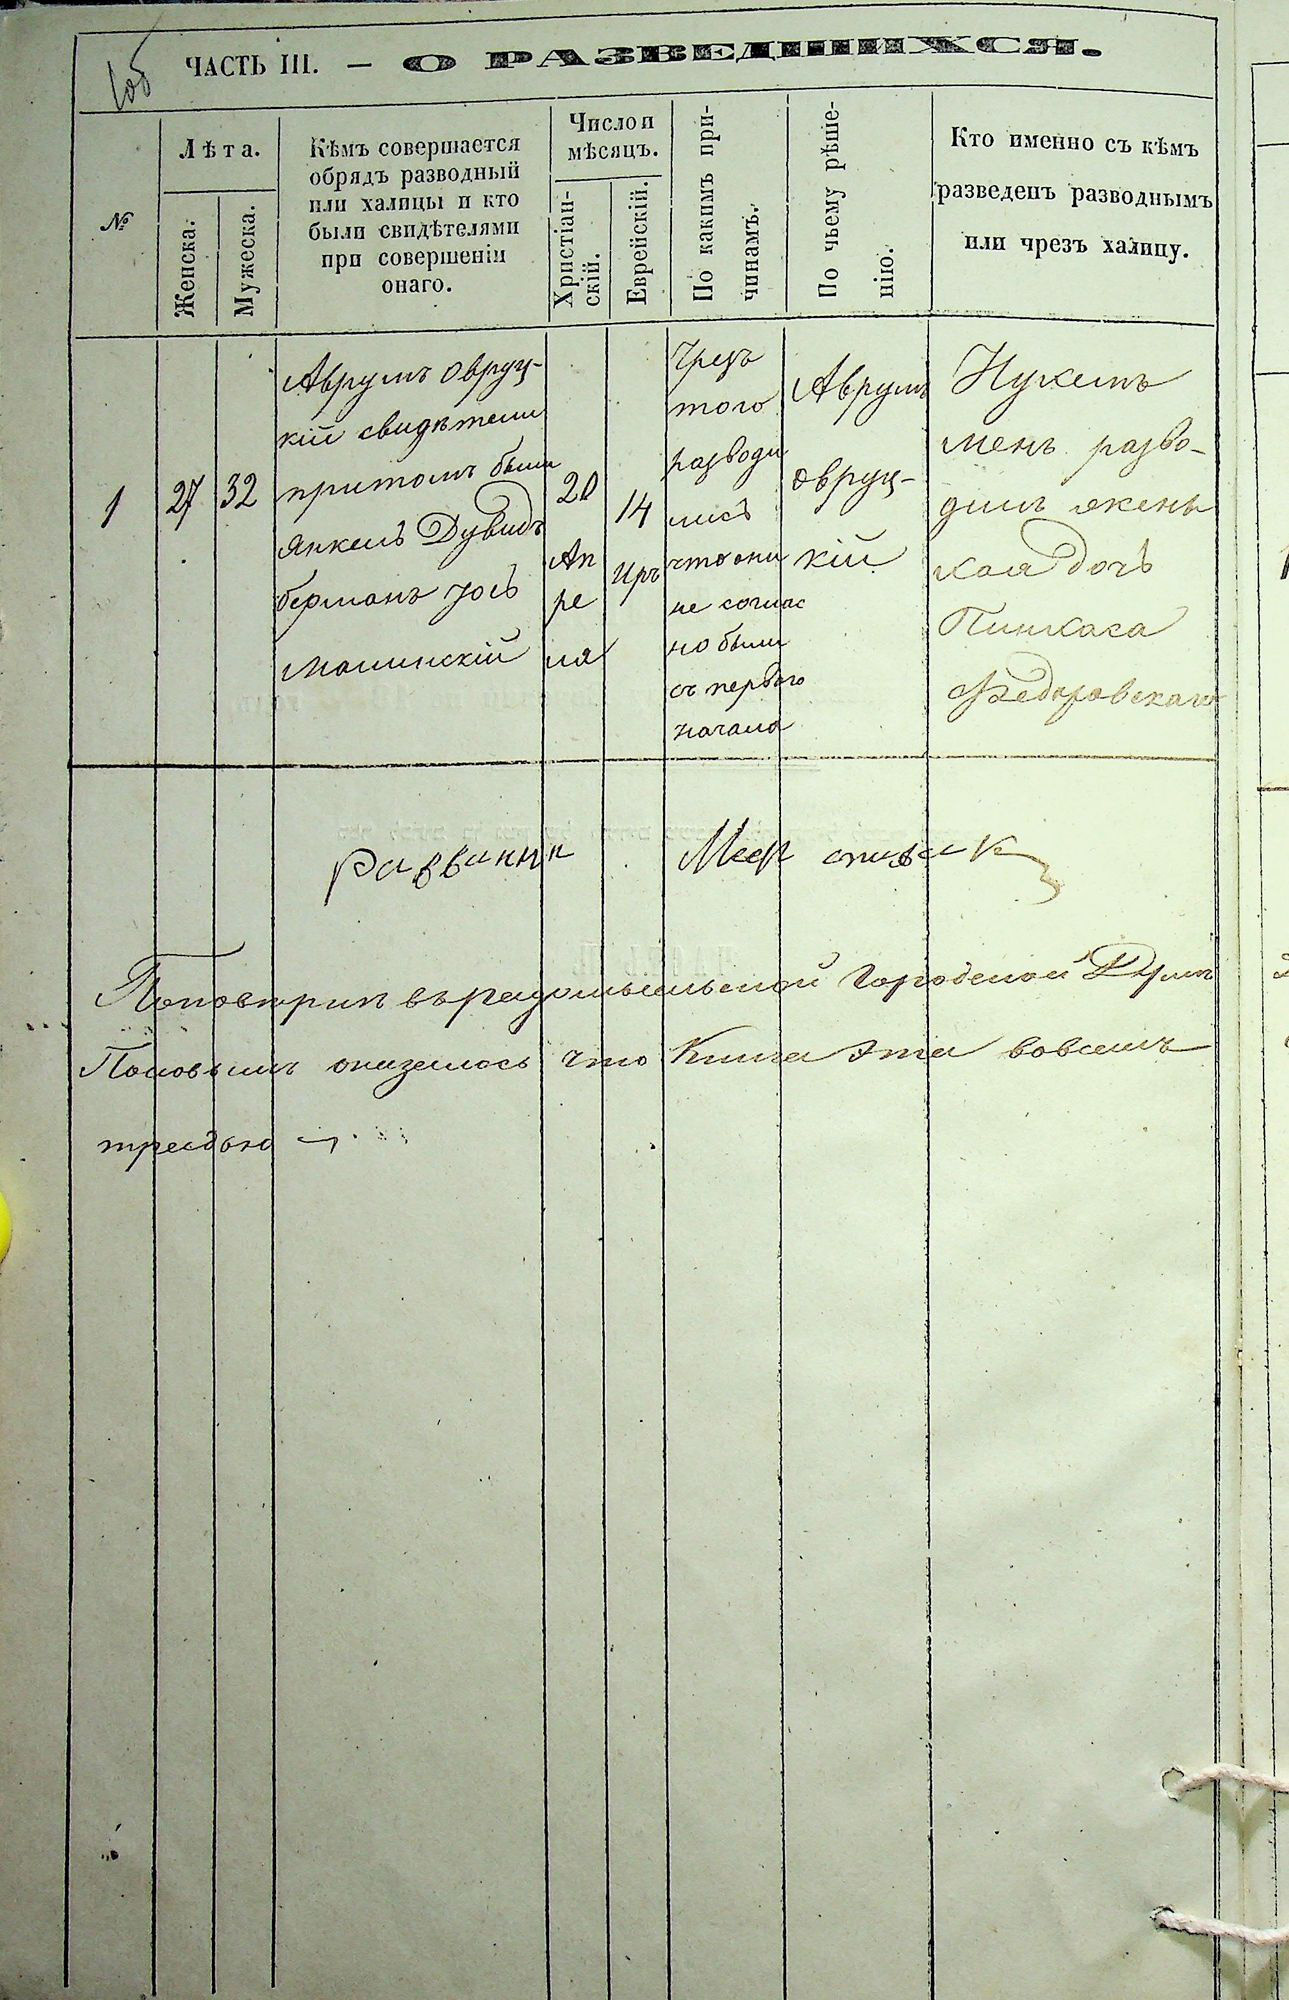 ЧАСТЬ III. — О РАЗВЕДШИХСЯ.
№
Лѣта.
Женска.
Мужеска.
Кѣмъ совершается
обрядъ разводный
или халицы и кто
были свидѣтелями
при совершеніи
онаго.
Число и
мѣсяцъ.
Христіан-
скій.
Еврейскій.
По какимъ при-
чинамъ.
По чьему рѣше-
нію.
Кто именно съ кѣмъ
разведенъ разводнымъ
или чрезъ халицу.
1
27
32
Аврумъ Овруц-
кій свидѣтели
притомъ были
Янкель Дувидъ
берманъ Іось
Малинскій
20
Ап
ре
ля
14
Иръ
Чрезъ
того
разводи
лись
что они
не соглас
но были
съ первого
начала
Аврумъ
Овруц-
кій
Нухимъ
менъ разво-
дилъ жень
хая дочь
Пинхаса
Федоровскаго
Раввинъ Меер спивак
По поверкѣ въ радомысльской Городской Думѣ
оказалось что Книга эта вовсемъ